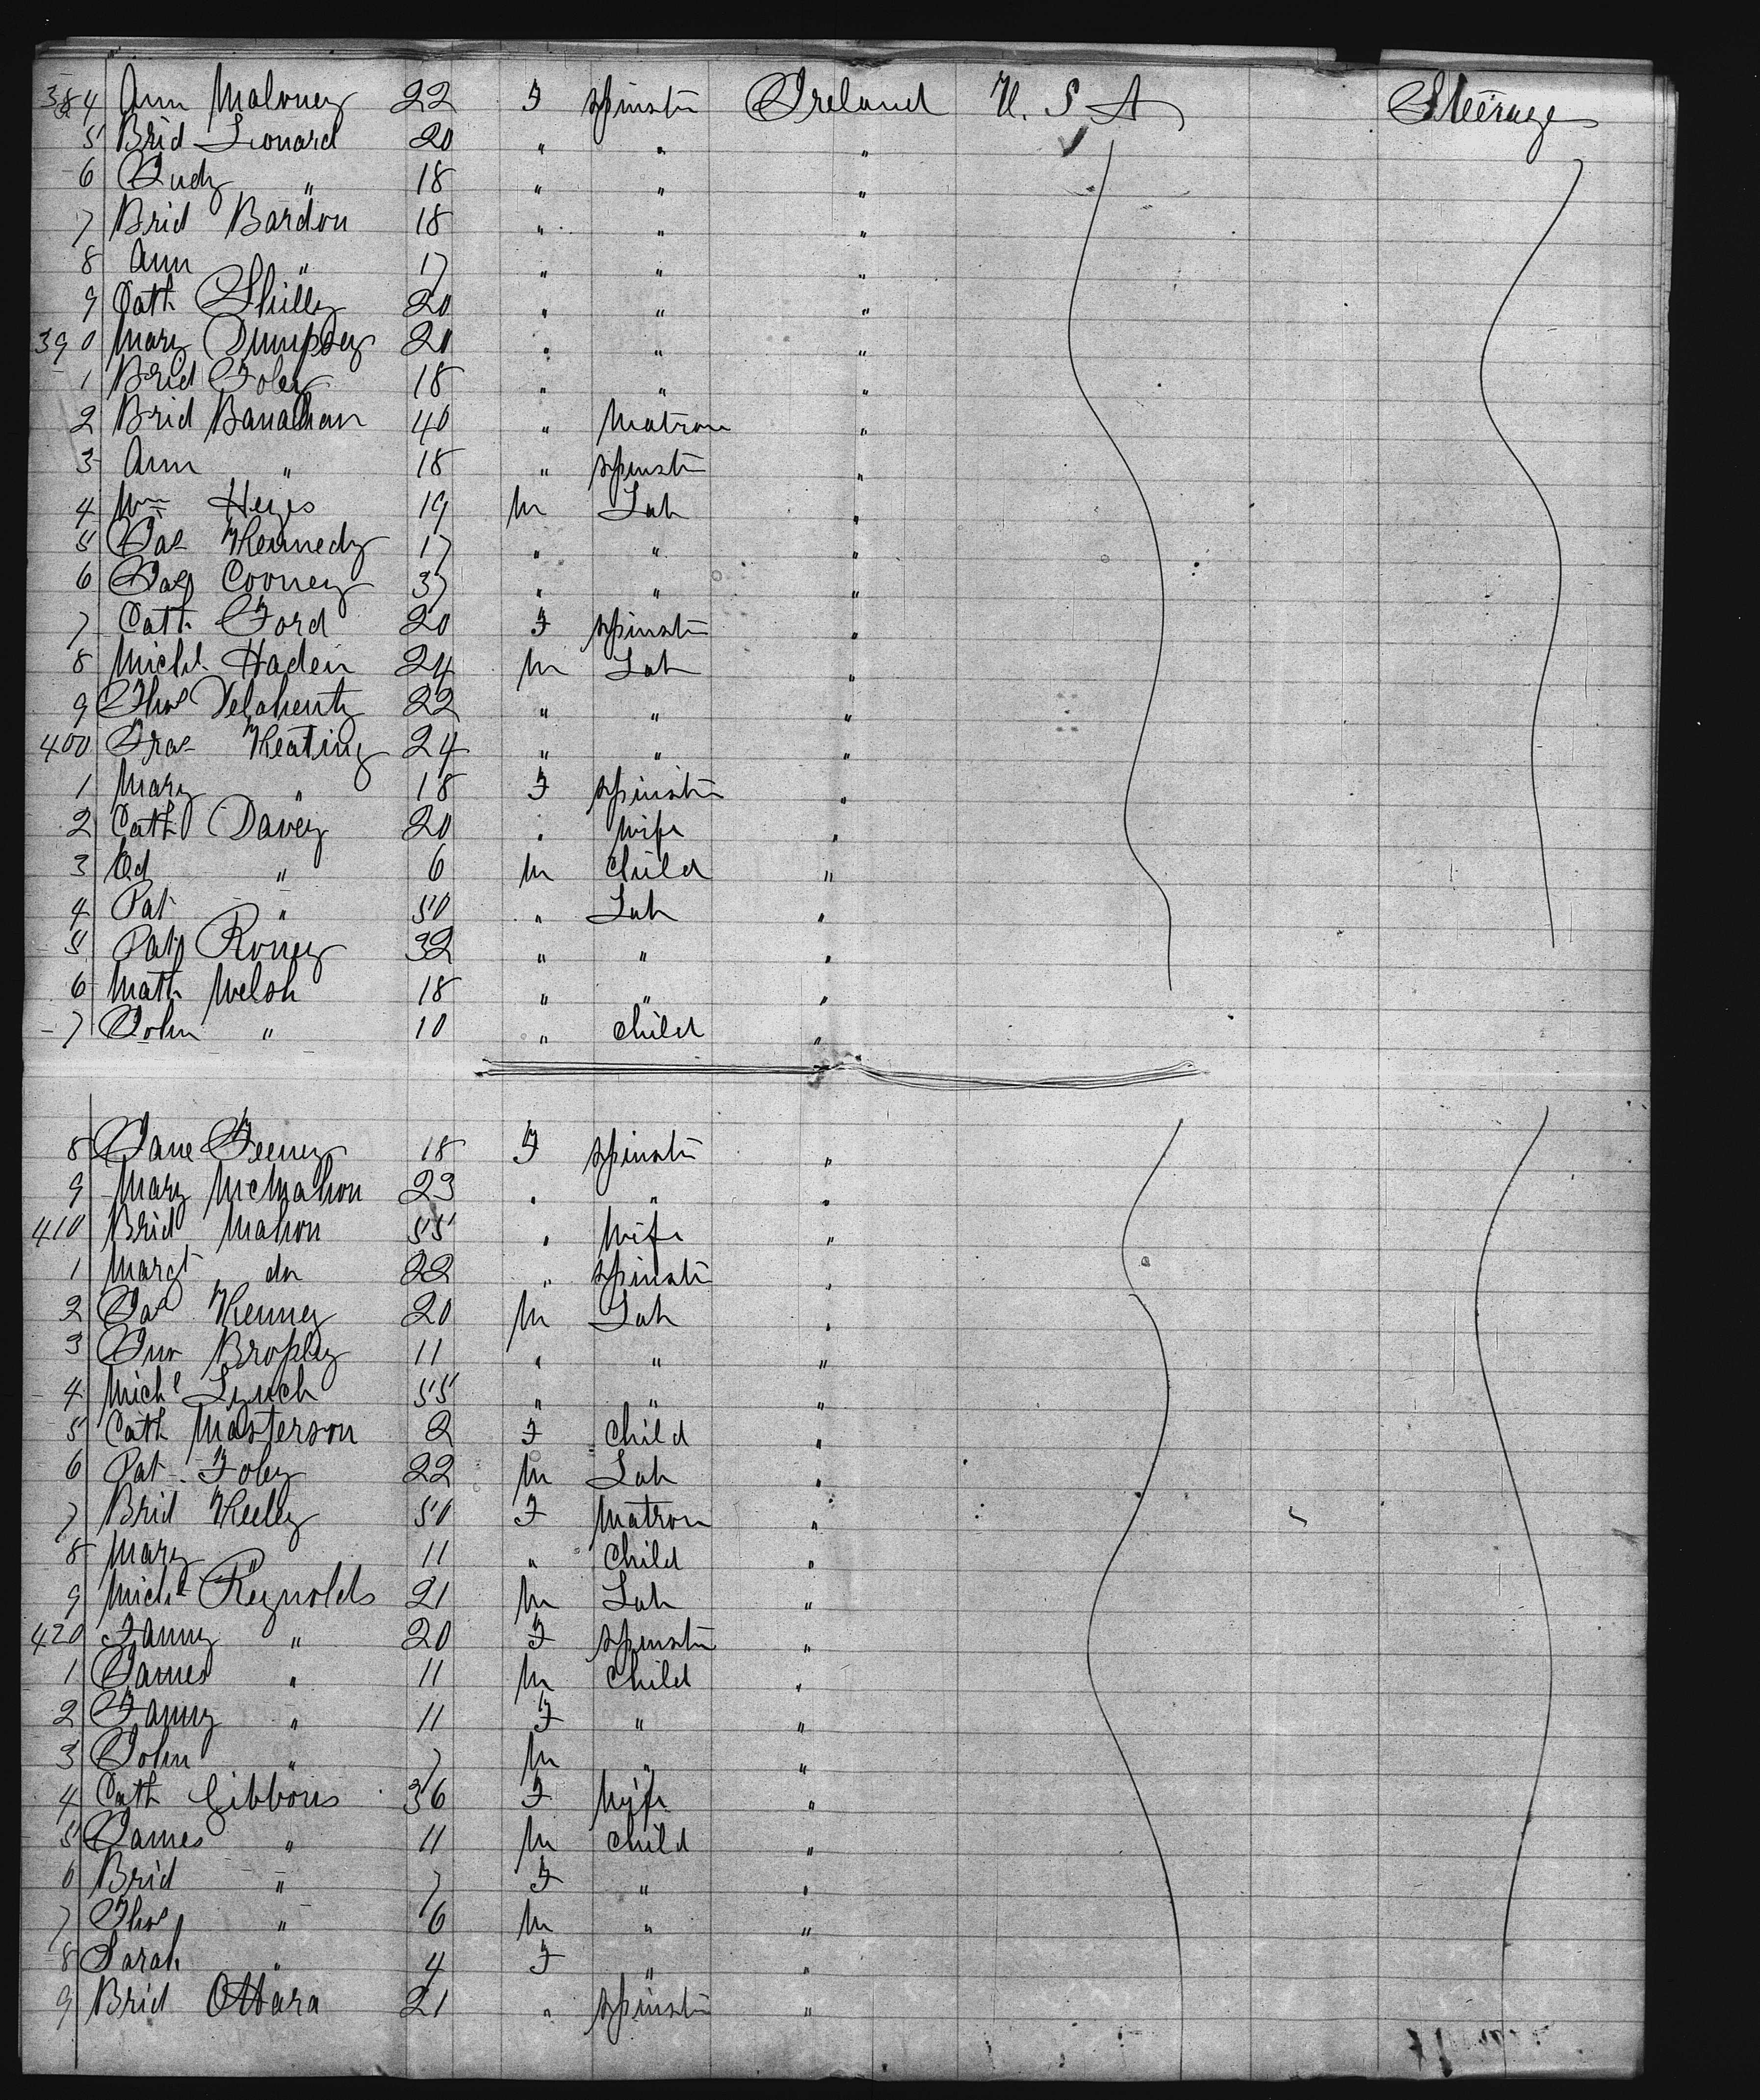 384 Ann Maloney 22 F Spinstr Ireland U. S A Steerage
5 Brid Leonard 20 " " "
6 Judy " 18 " " "
7 Brid Bardon 18 " " "
8 Ann " 17 " " "
9 Cath Skilly 20 " " "
390 Mary Dumpsey 20 " " "
1 Brid Foley 18 " " "
2 Brid Banahan 40 " Matron "
3 Ann " 18 " Spinstr "
4 Wm Heyes 19 M Lab "
5 Jas Kennedy 17 " " "
6 Jas Cooney 37 " " "
7 Cath Ford 20 F Spinstr "
8 Michl Haden 24 M Lab "
9 Thos Delahenty 22 " " "
400 Fras Keating 24 " " "
1 Mary " 18 F Spinstr "
2 Cath Davey 20 " Wife "
3 Ed " 6 M Child "
4 Pat " 50 " Lab "
5 Pat Roney 32 " " "
6 Math Welsh 18 " " "
7 John " 10 " Child "
8 Jane Feeney 18 F Spinstr "
9 Mary McMahon 23 " " "
410 Brid Mahon 55 " Wife "
1 Margt do 22 " Spinstr "
2 Jas Kenney 20 M Lab "
3 Jno Brophy 11 " " "
4 Michl Lynch 55 " " "
5 Cath Masterson 2 F Child "
6 Pat Foley 22 M Lab "
7 Brid Keeley 50 F Matron "
8 Mary " 11 " Child "
9 Michl Reynolds 21 M Lab "
420 Fanny " 20 F Spinstr "
1 James " 11 M Child "
2 Fanny " 11 F " "
3 John " 7 M " "
4 Cath Gibbons 36 F Wife "
5 James " 11 M Child "
6 Brid " 7 F " "
7 Thos " 6 M " "
8 Sarah " 4 F " "
9 Brid OHara 21 " Spinstr "